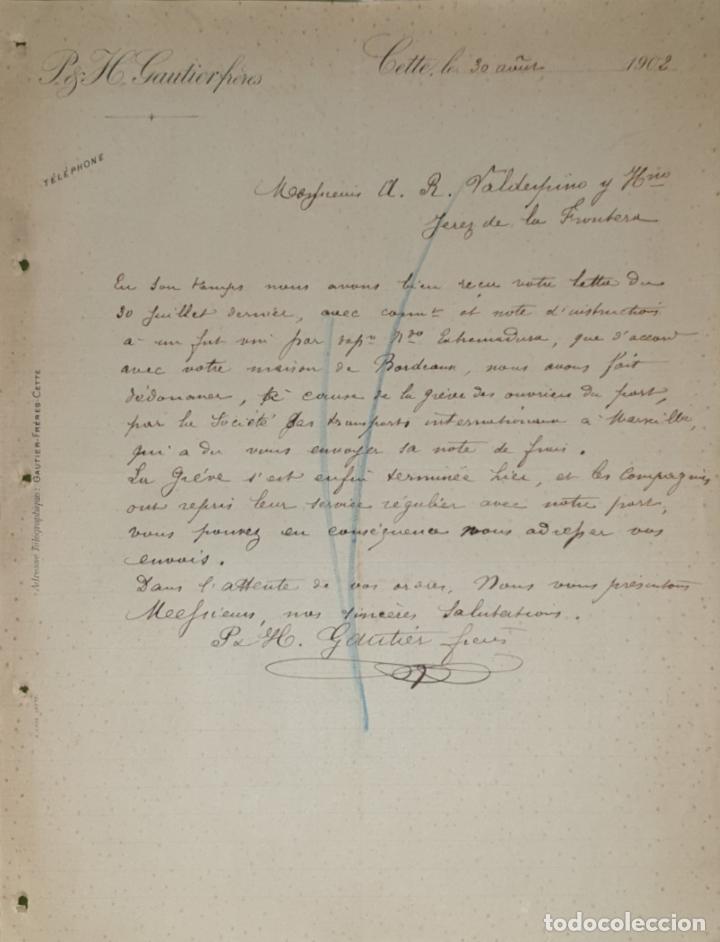 P. & H. Gautier frères
Cette, le 30 août 1902
TÉLÉPHONE
Messieurs A. R. Valdespino y Hno
Jerez de la Frontera
En son temps nous avons bien reçu votre lettre du
30 juillet dernier, avec connt et note d'instructions
à un fut vin par vapr Ndo Estremadura, que d'accord
avec votre maison de Bordeaux, nous avons fait
dédouaner, à cause de la grève des ouvriers du port,
par la Société des transports internationaux à Marseille,
qui a du vous envoyer sa note de frais.
La Grève s'est enfin terminée hier, et les Compagnies
ont repris leur service régulier avec notre port,
vous pouvez en conséquence nous adresser vos
envois.
Dans l'attente de vos ordres, Nous vous présentons
Messieurs, nos sincères Salutations.
P & H. Gautier frères
Adresse Télégraphique: GAUTIER-FRÈRES-CETTE
todocoleccion
todocoleccion.net